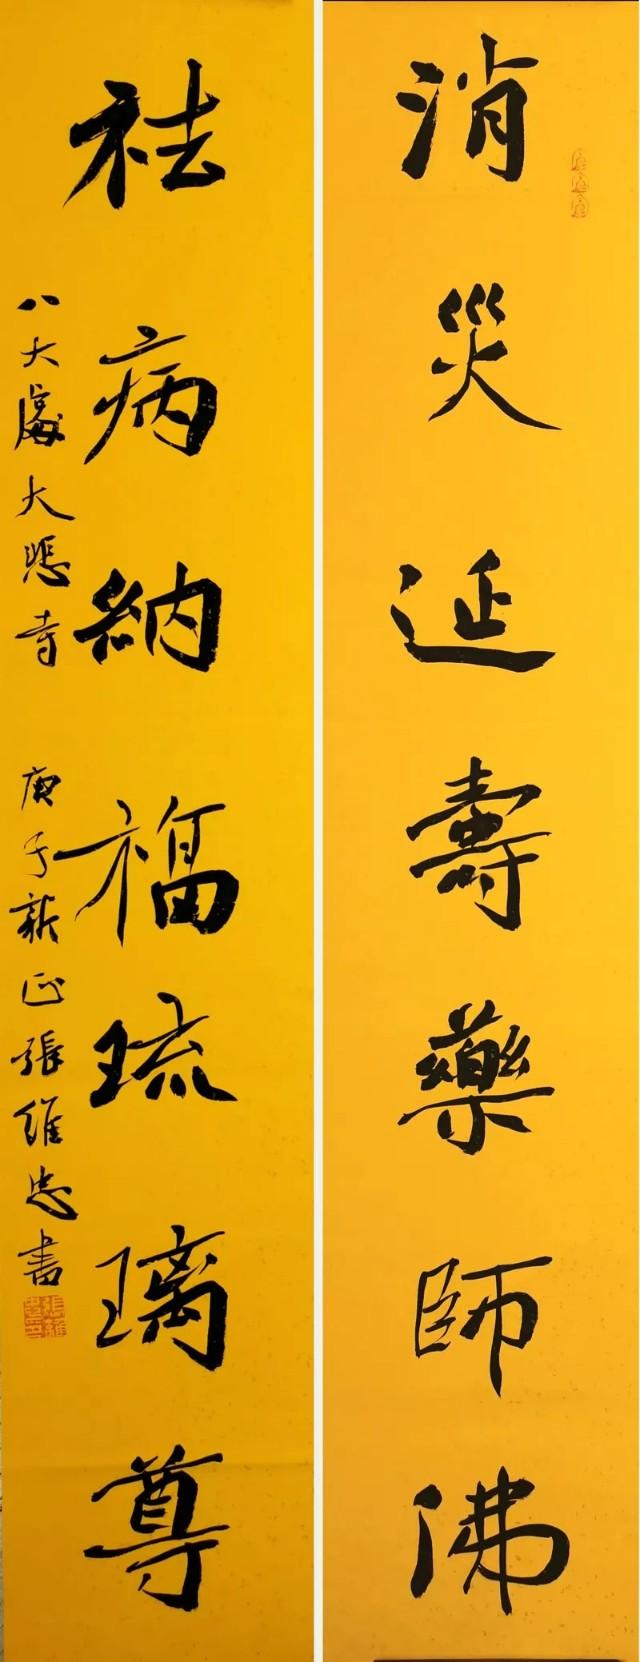 消災延壽藥師佛
祛病納福琉璃尊
八大處大悲寺 庚子新正張維忠書
張維忠印